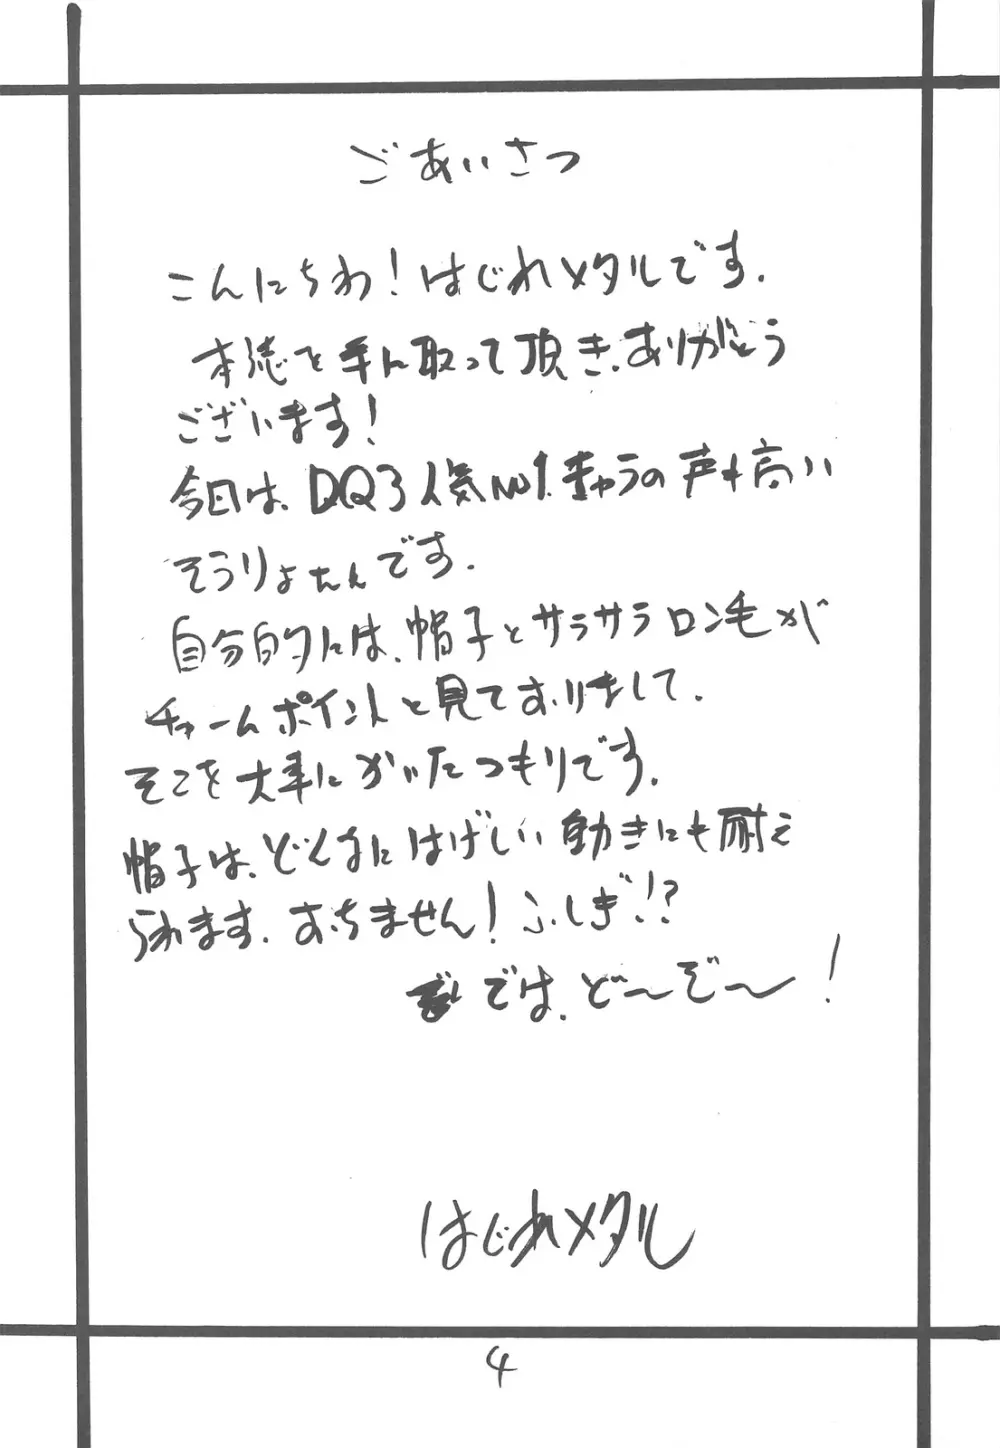 ごあいさつ
こんにちわ！はじれメタルです。
本誌を手に取って頂き、ありがとう
ございます！
今日は、DQ3人気No1.ぎゃうの声も高い
そうりょたんです。
自分的には、帽子とサラサラロン毛が
チャームポイントと見ておりまして、
そこを大事にかいたつもりです。
帽子は、どんなにはげしい動きにも耐え
られます。おちません！ふしぎ!?
では、ど〜ぞ〜！
はじれメタル
4